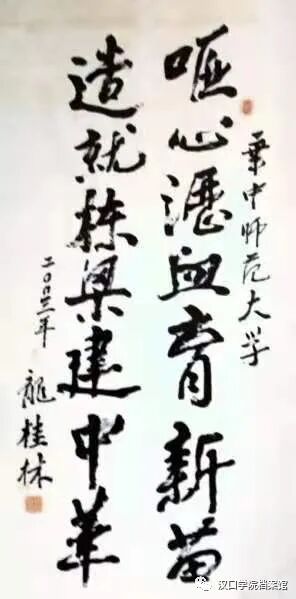 华中师范大学
呕心瀝血育新苗
造就栋梁建中華
二〇〇三年
龍桂林
汉口学院档案馆